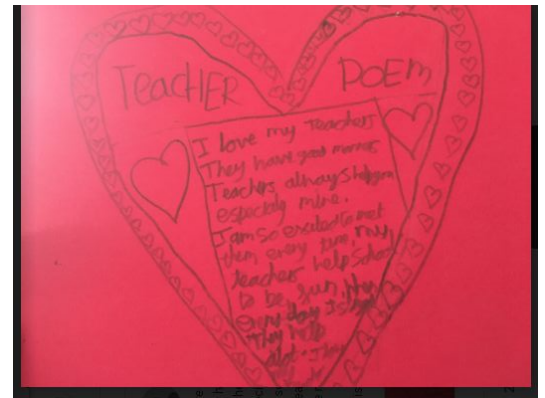 TeacHER POEM
I love my Teachers
They have good manners
Teachers always help you
especialy mine.
I am so excited to meet
them every time, my
teachers help School
to be fun, they
every day I see
They help
alot. They